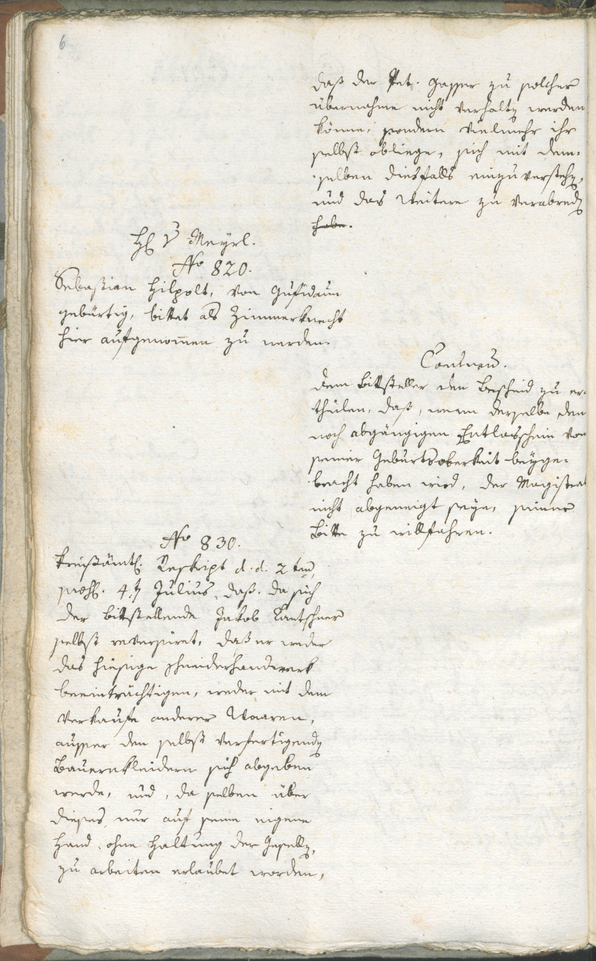 6
daß der Pet: Gasser zu solcher
übernahme nicht verhalten werden
könne, sondern vielmehr ihr
selbst obliege, sich mit dem-
selben diesfalls einzuverstehen,
und das Weitere zu verabreden
habe.
H: v Meyrl.
No 820.
Sebastian Hilpolt, von Gufidaun
gebürtig, bittet als Zimmerknecht
hier aufgenommen zu werden.
Conclusum.
Dem Bittsteller den Bescheid zu er-
theilen, daß, wenn derselbe den
noch abgängigen Entlasschein von
seiner Geburtsoberkeit beyge-
bracht haben wird, der Magistrat
nicht abgeneigt seye, seiner
Bitte zu willfahren.
No 830.
Kreisämtl: Reskript d. d. 2ten
praes. 4. Julius, daß, da sich
der bittstellende Jakob Kaltschner
selbst reversiret, daß er weder
das hiesige Schneiderhandwerk
beeinträchtigen, weder mit dem
Verkaufe anderer Waaren,
ausser den selbst verfertigenden
Bauernkleidern sich abgeben
werde, und, da selben über
dieses nur auf seine eigene
Hand, ohne Haltung der Gesellen,
zu arbeiten erlaubet worden,